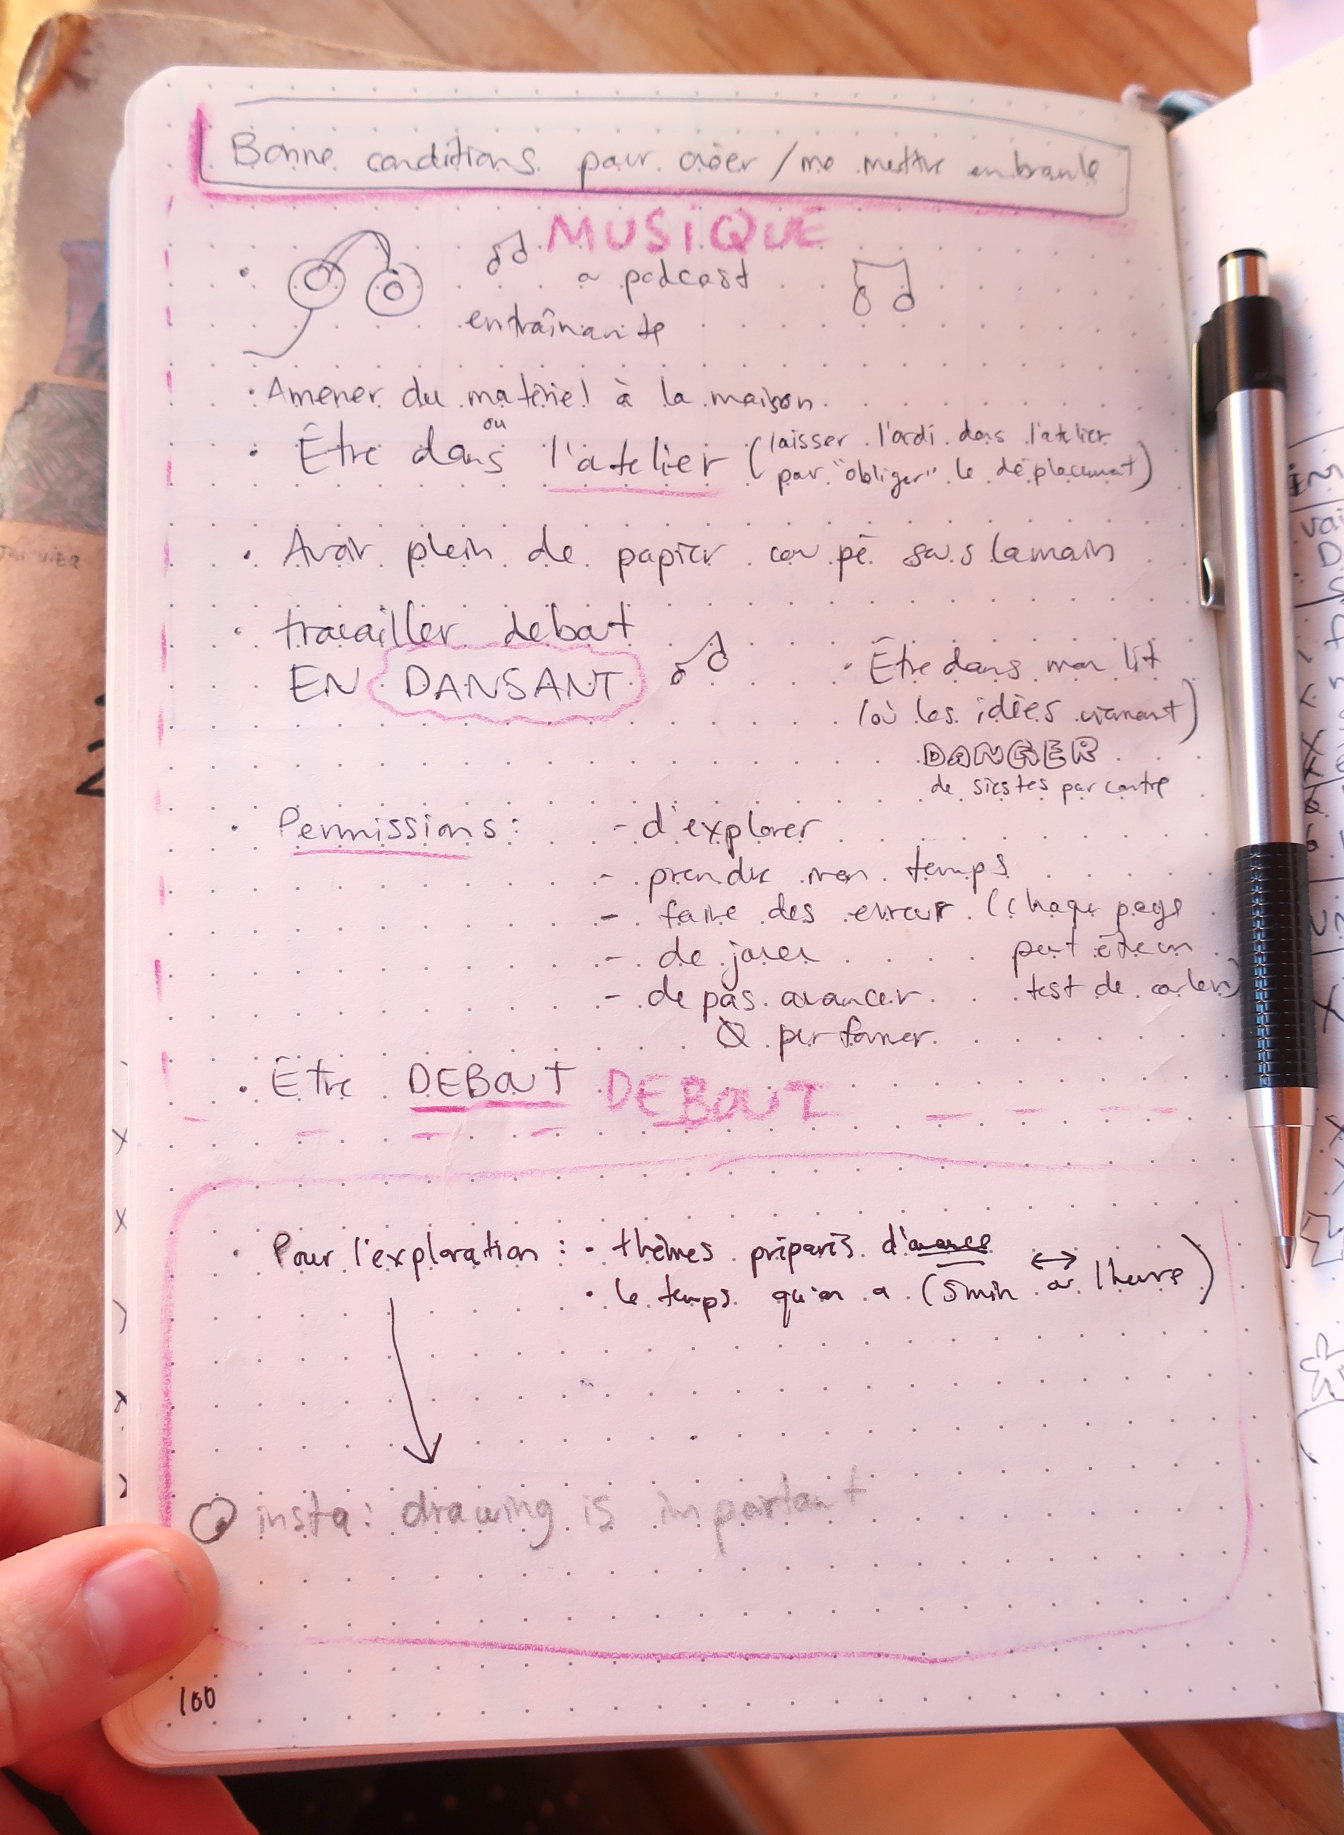 Bonne conditions pour créer / me mettre en branle
MUSIQUE
podcast
entraînante
· Amener du matériel à la maison.
ou
· Être dans l'atelier (laisser l'ordi dans l'atelier
par "obliger" le déplacement)
· Avoir plein de papier coupé sous la main
· travailler debout
EN DANSANT
· Être dans mon lit
(où les idées viennent)
DANGER
de siestes par contre
· Permissions : - d'explorer
- prendre mon temps
- faire des erreur (chaque page
- de jouer peut être un
- de pas avancer test de couleur)
performer.
· Être DEBOUT DEBOUT
· Pour l'exploration : · thèmes préparés
· le temps qu'on a (5min ↔ ou 1 heure)
insta: drawing is important
100
JANVIER